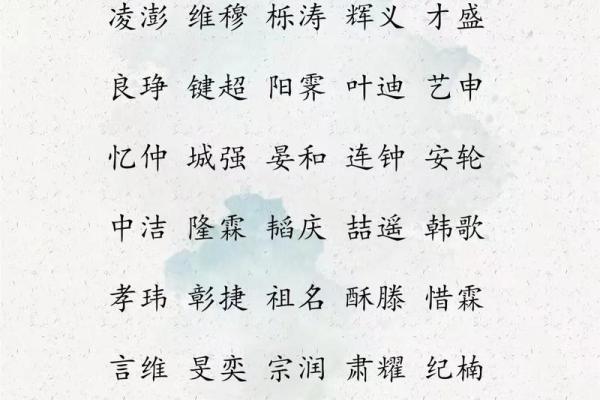 凌澎 维穆 栎涛 辉义 才盛
良琤 键超 阳霁 叶迪 艺申
忆仲 城强 晏和 连钟 安轮
中洁 隆霖 韬庆 喆遥 韩歌
孝玮 彰捷 祖名 酥滕 惜霖
言维 旻奕 宗润 肃耀 纪楠